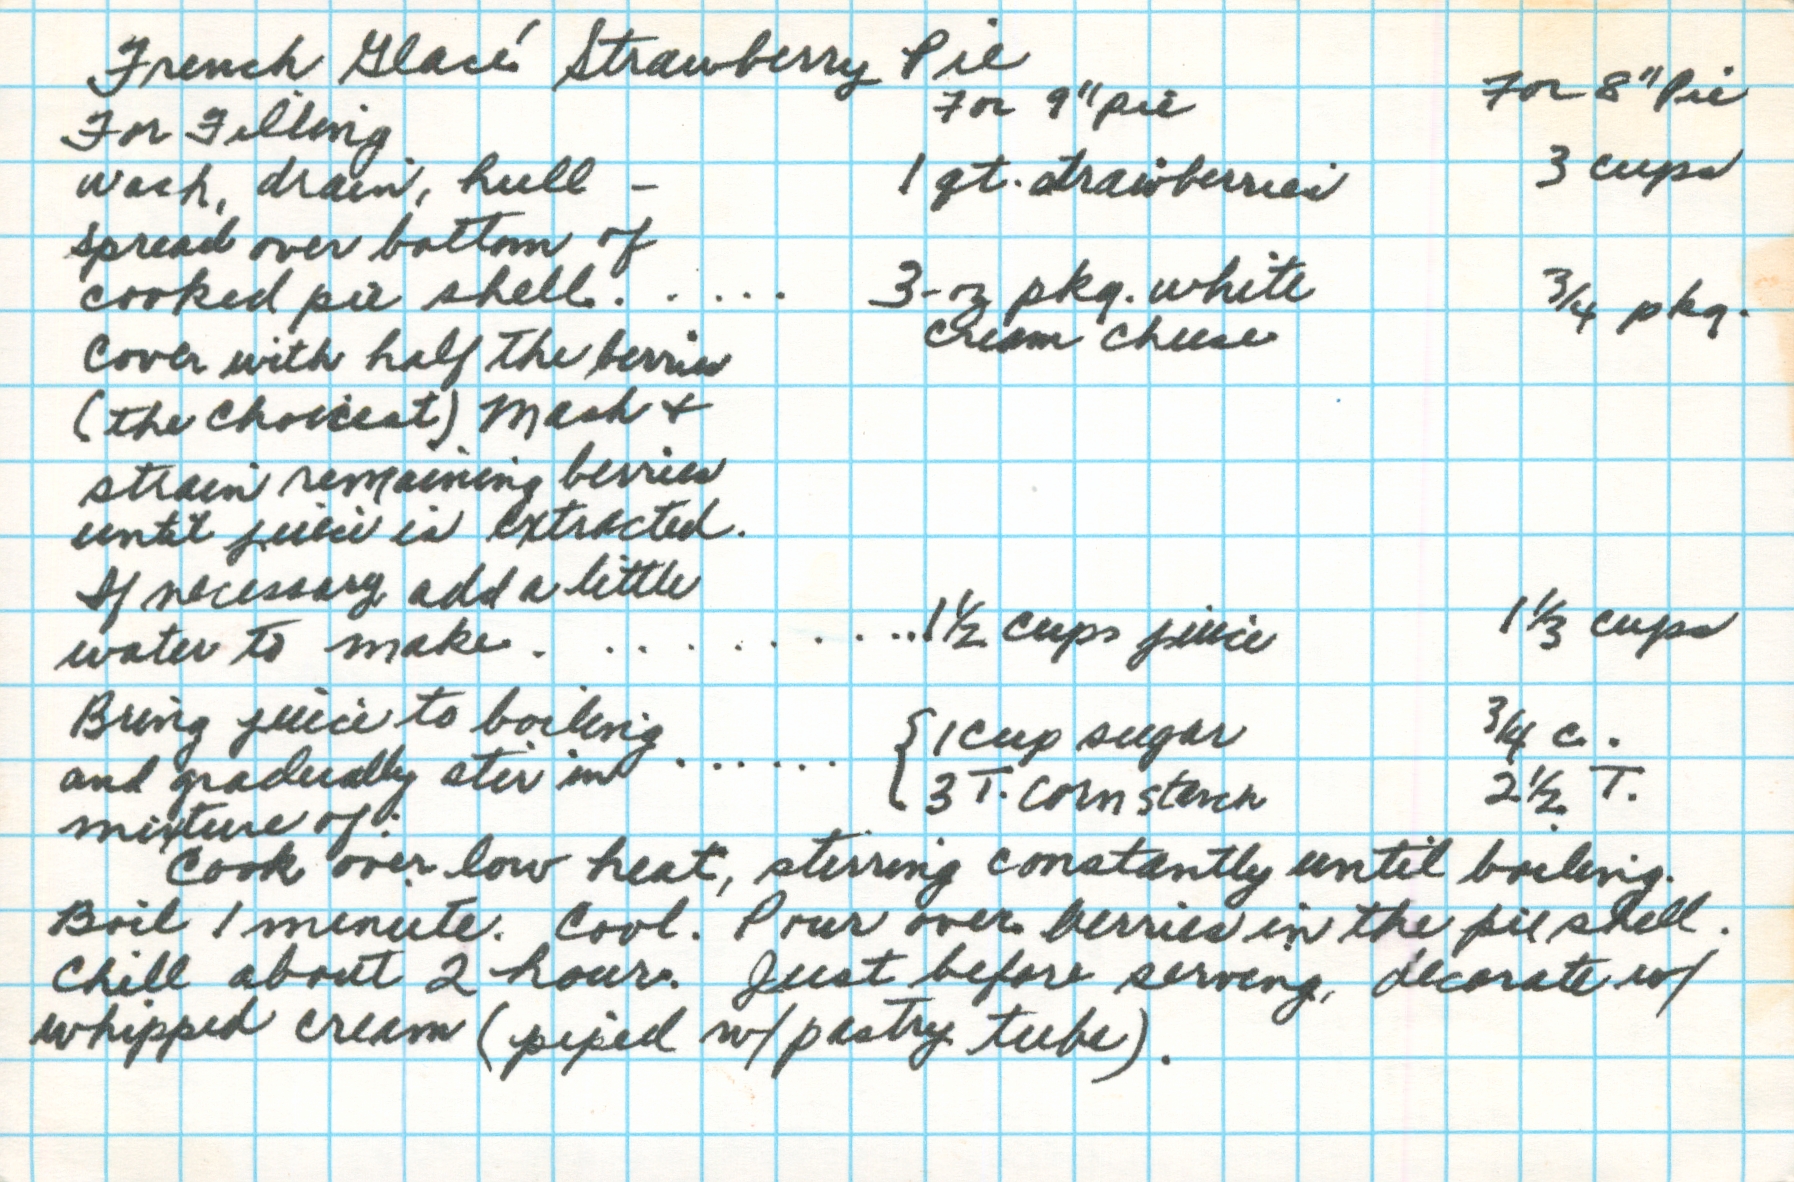 French Glacé Strawberry Pie
For 9" pie For 8" Pie
For Filling
Wash, drain, hull – 1 qt. strawberries 3 cups
spread over bottom of
cooked pie shell. . . . . . 3-oz pkg. white 3/4 pkg.
cream cheese
Cover with half the berries
(the choicest) Mash &
strain remaining berries
until juice is extracted.
If necessary add a little
water to make. . . . . . . . . . . 1 1/2 cups juice 1 1/3 cups
Bring juice to boiling { 1 cup sugar 3/4 c.
and gradually stir in . . . . . . 3 T. cornstarch 2 1/2 T.
mixture of:
Cook over low heat, stirring constantly until boiling.
Boil 1 minute. Cool. Pour over berries in the pie shell.
Chill about 2 hours. Just before serving, decorate w/
whipped cream (piped w/ pastry tube).